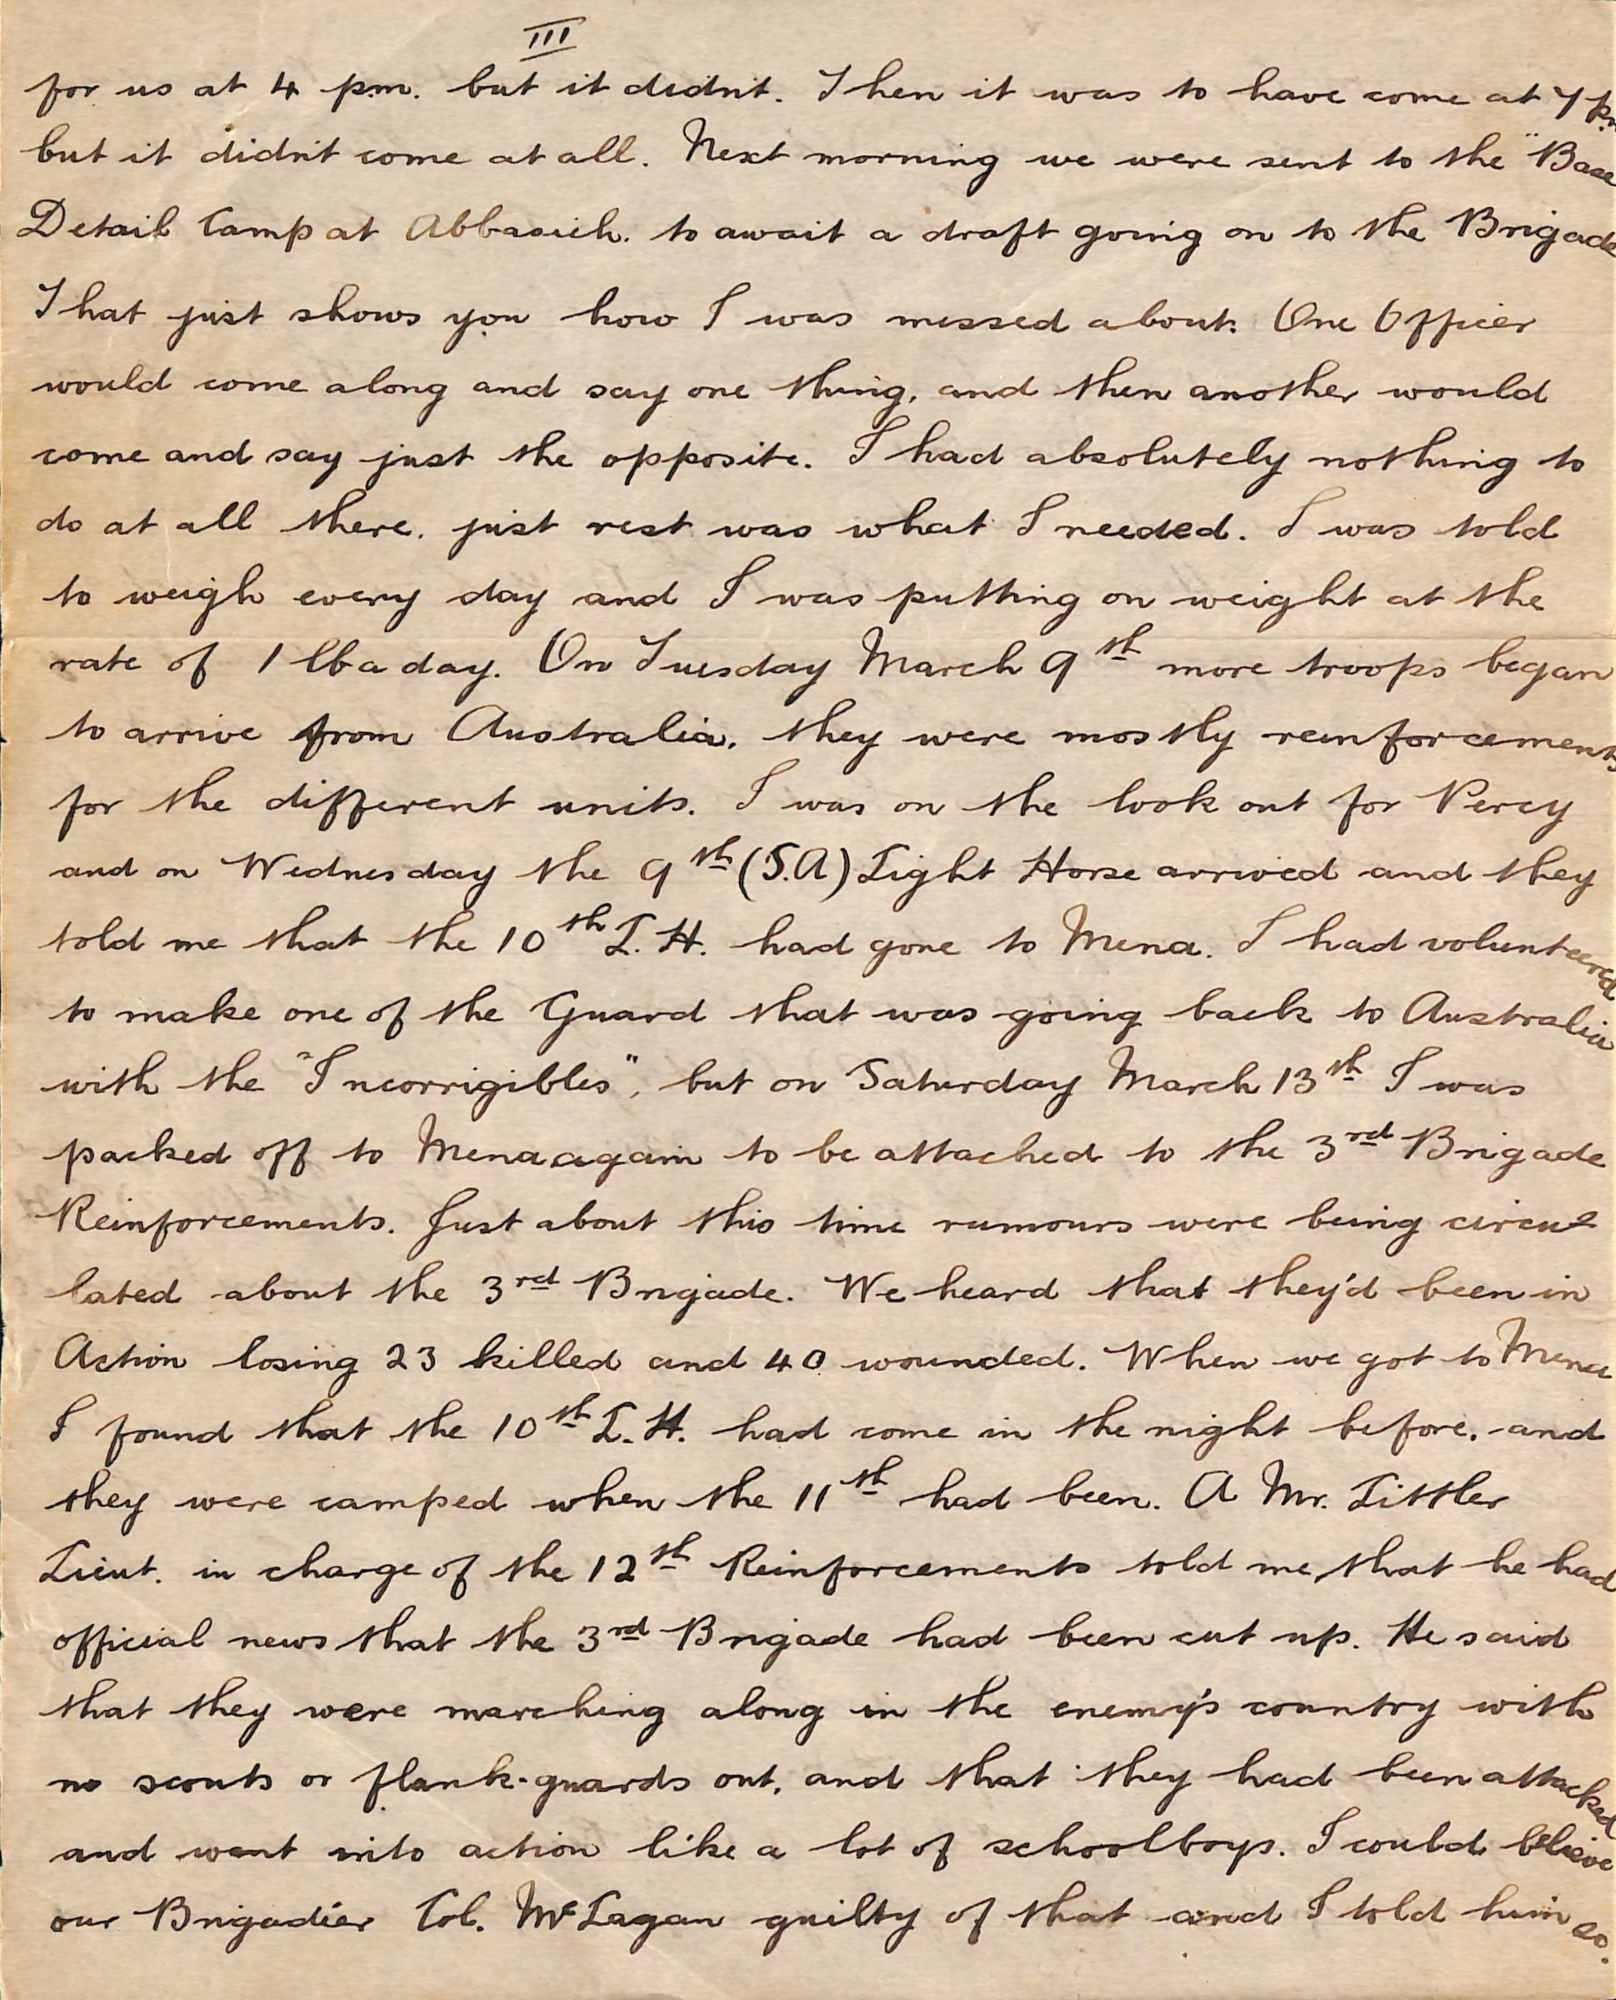 III
for us at 4 p.m. but it didn't. Then it was to have come at 7 p.m
but it didn't come at all. Next morning we were sent to the "Base
Detail Camp at Abbasieh. to await a draft going on to the Brigade
That just shows you how I was messed about. One Officer
would come along and say one thing, and then another would
come and say just the opposite. I had absolutely nothing to
do at all there. just rest was what I needed. I was told
to weigh every day and I was putting on weight at the
rate of 1 lb a day. On Tuesday March 9th more troops began
to arrive from Australia, they were mostly reinforcements
for the different units. I was on the look out for Percy
and on Wednesday the 9th (S.A) Light Horse arrived and they
told me that the 10th L.H. had gone to Mena. I had volunteered
to make one of the Guard that was going back to Australia
with the "Incorrigibles", but on Saturday March 13th I was
packed off to Mena again to be attached to the 3rd Brigade
Reinforcements. Just about this time rumours were being circu-
lated about the 3rd Brigade. We heard that they'd been in
Action losing 23 killed and 40 wounded. When we got to Mena
I found that the 10th L.H. had come in the night before, and
they were camped when the 11th had been. A Mr. Littler
Lieut. in charge of the 12th Reinforcements told me that he had
official news that the 3rd Brigade had been cut up. He said
that they were marching along in the enemy's country with
no scouts or flank-guards out, and that they had been attacked
and went into action like a lot of schoolboys. I could believe
our Brigadier Col. McLagan guilty of that and I told him so.